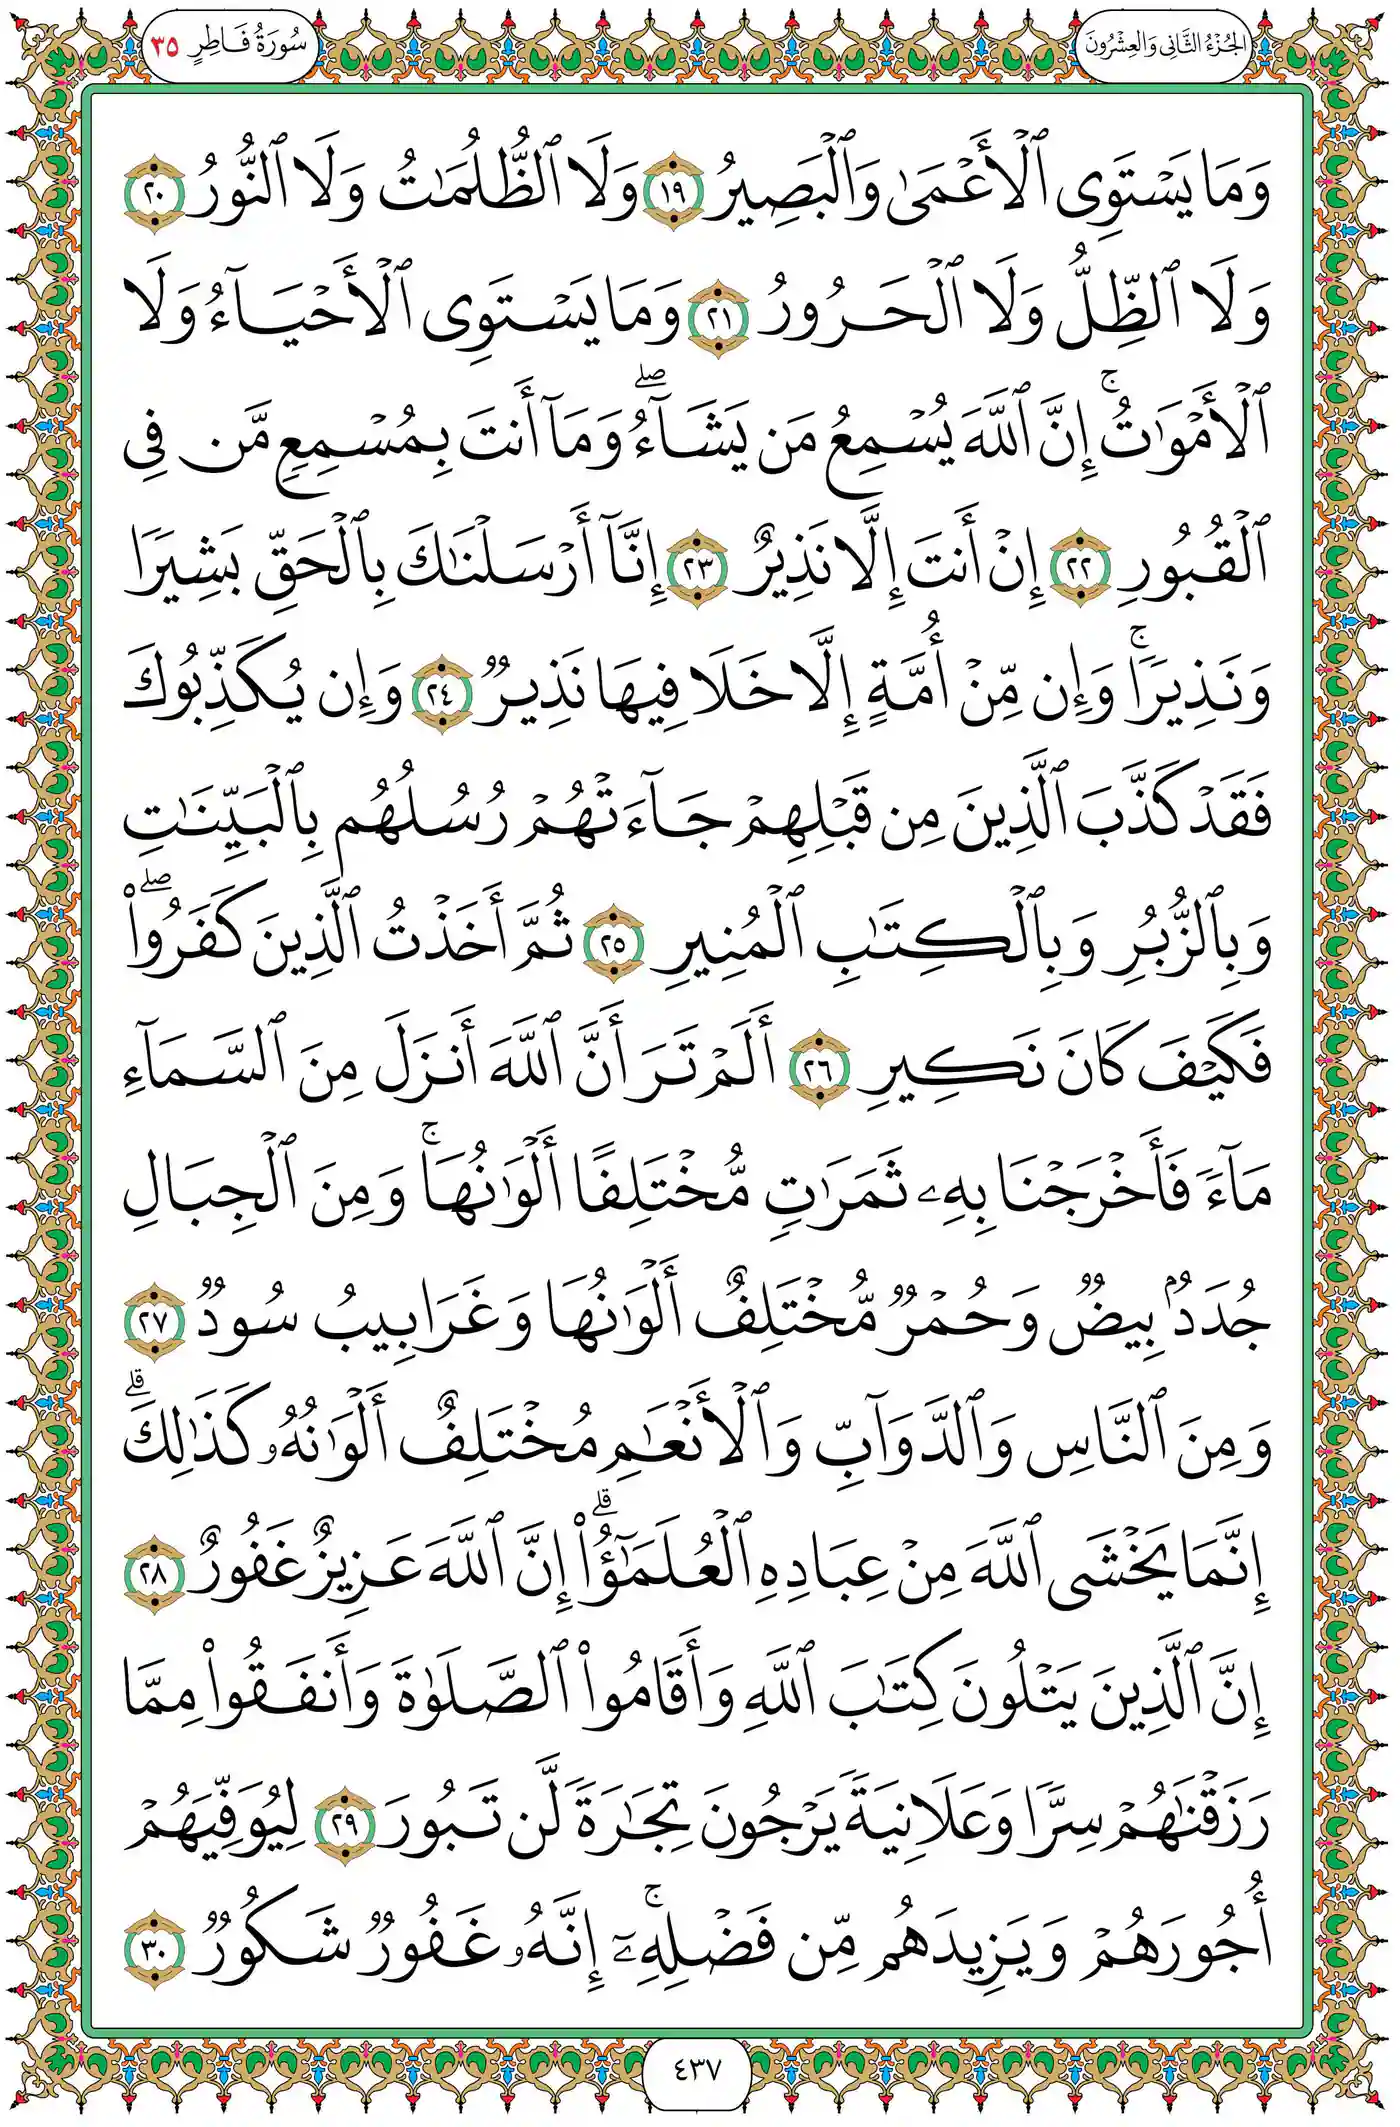 الجُزْءُ الثَّانِي وَالعِشْرُونَ
سُورَةُ فَاطِرٍ ٣٥
وَمَا يَسْتَوِى ٱلْأَعْمَىٰ وَٱلْبَصِيرُ ١٩ وَلَا ٱلظُّلُمَٰتُ وَلَا ٱلنُّورُ ٢٠
وَلَا ٱلظِّلُّ وَلَا ٱلْحَرُورُ ٢١ وَمَا يَسْتَوِى ٱلْأَحْيَآءُ وَلَا
ٱلْأَمْوَٰتُ ۚ إِنَّ ٱللَّهَ يُسْمِعُ مَن يَشَآءُ ۖ وَمَآ أَنتَ بِمُسْمِعٍ مَّن فِى
ٱلْقُبُورِ ٢٢ إِنْ أَنتَ إِلَّا نَذِيرٌ ٢٣ إِنَّآ أَرْسَلْنَٰكَ بِٱلْحَقِّ بَشِيرًا
وَنَذِيرًا ۚ وَإِن مِّنْ أُمَّةٍ إِلَّا خَلَا فِيهَا نَذِيرٌ ٢٤ وَإِن يُكَذِّبُوكَ
فَقَدْ كَذَّبَ ٱلَّذِينَ مِن قَبْلِهِمْ جَآءَتْهُمْ رُسُلُهُم بِٱلْبَيِّنَٰتِ
وَبِٱلزُّبُرِ وَبِٱلْكِتَٰبِ ٱلْمُنِيرِ ٢٥ ثُمَّ أَخَذْتُ ٱلَّذِينَ كَفَرُوا۟ ۖ
فَكَيْفَ كَانَ نَكِيرِ ٢٦ أَلَمْ تَرَ أَنَّ ٱللَّهَ أَنزَلَ مِنَ ٱلسَّمَآءِ
مَآءً فَأَخْرَجْنَا بِهِۦ ثَمَرَٰتٍ مُّخْتَلِفًا أَلْوَٰنُهَا ۚ وَمِنَ ٱلْجِبَالِ
جُدَدٌۢ بِيضٌ وَحُمْرٌ مُّخْتَلِفٌ أَلْوَٰنُهَا وَغَرَابِيبُ سُودٌ ٢٧
وَمِنَ ٱلنَّاسِ وَٱلدَّوَآبِّ وَٱلْأَنْعَٰمِ مُخْتَلِفٌ أَلْوَٰنُهُۥ كَذَٰلِكَ ۗ
إِنَّمَا يَخْشَى ٱللَّهَ مِنْ عِبَادِهِ ٱلْعُلَمَٰٓؤُا۟ ۗ إِنَّ ٱللَّهَ عَزِيزٌ غَفُورٌ ٢٨
إِنَّ ٱلَّذِينَ يَتْلُونَ كِتَٰبَ ٱللَّهِ وَأَقَامُوا۟ ٱلصَّلَوٰةَ وَأَنفَقُوا۟ مِمَّا
رَزَقْنَٰهُمْ سِرًّا وَعَلَانِيَةً يَرْجُونَ تِجَٰرَةً لَّن تَبُورَ ٢٩ لِيُوَفِّيَهُمْ
أُجُورَهُمْ وَيَزِيدَهُم مِّن فَضْلِهِۦٓ ۚ إِنَّهُۥ غَفُورٌ شَكُورٌ ٣٠
٤٣٧